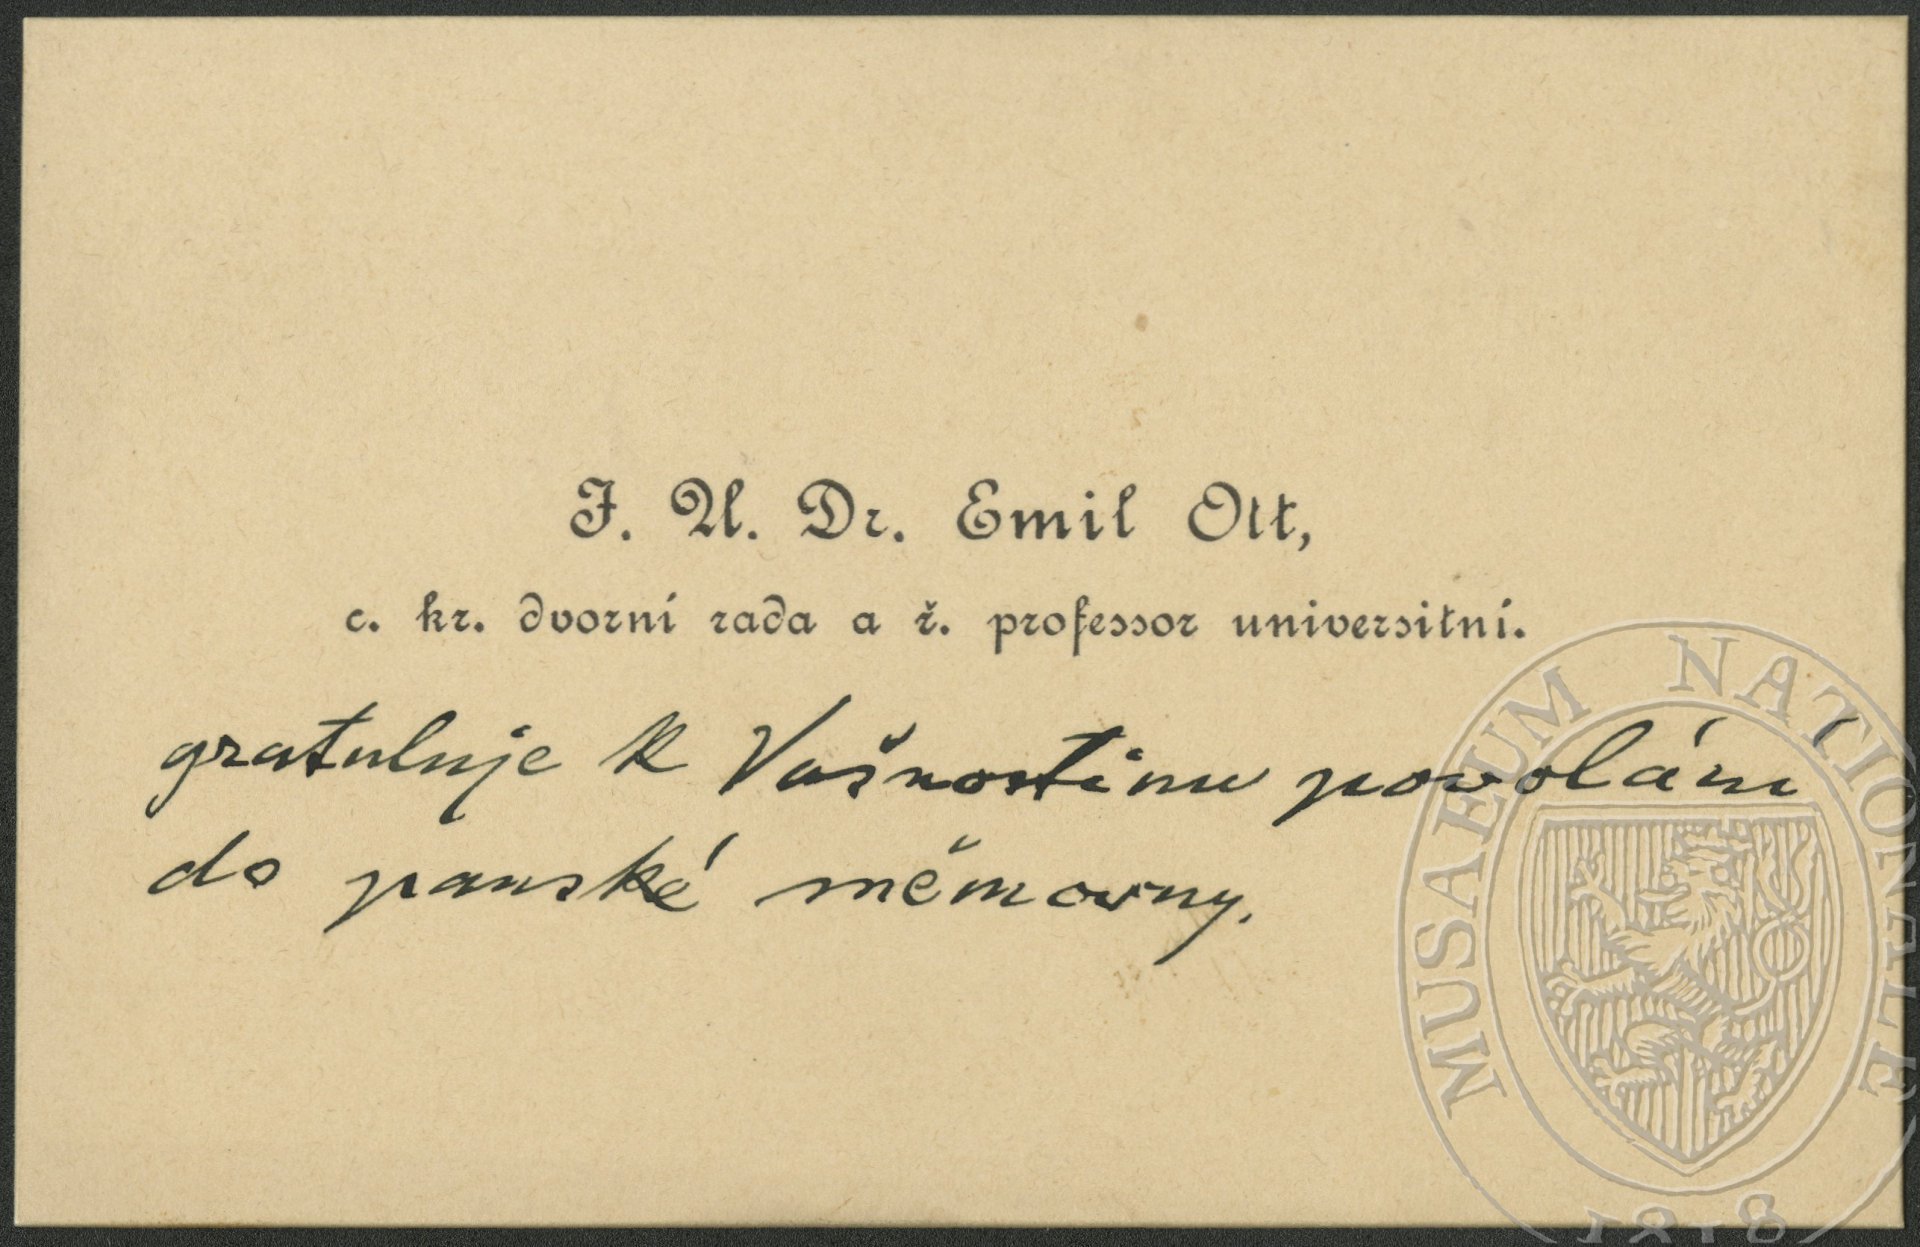 J. U. Dr. Emil Ott,
c. kr. dvorní rada a ř. professor universitní.
gratuluje k Vašnostinu povolání
do panské měmovny.
MUSAEUM NATIONALE
1818